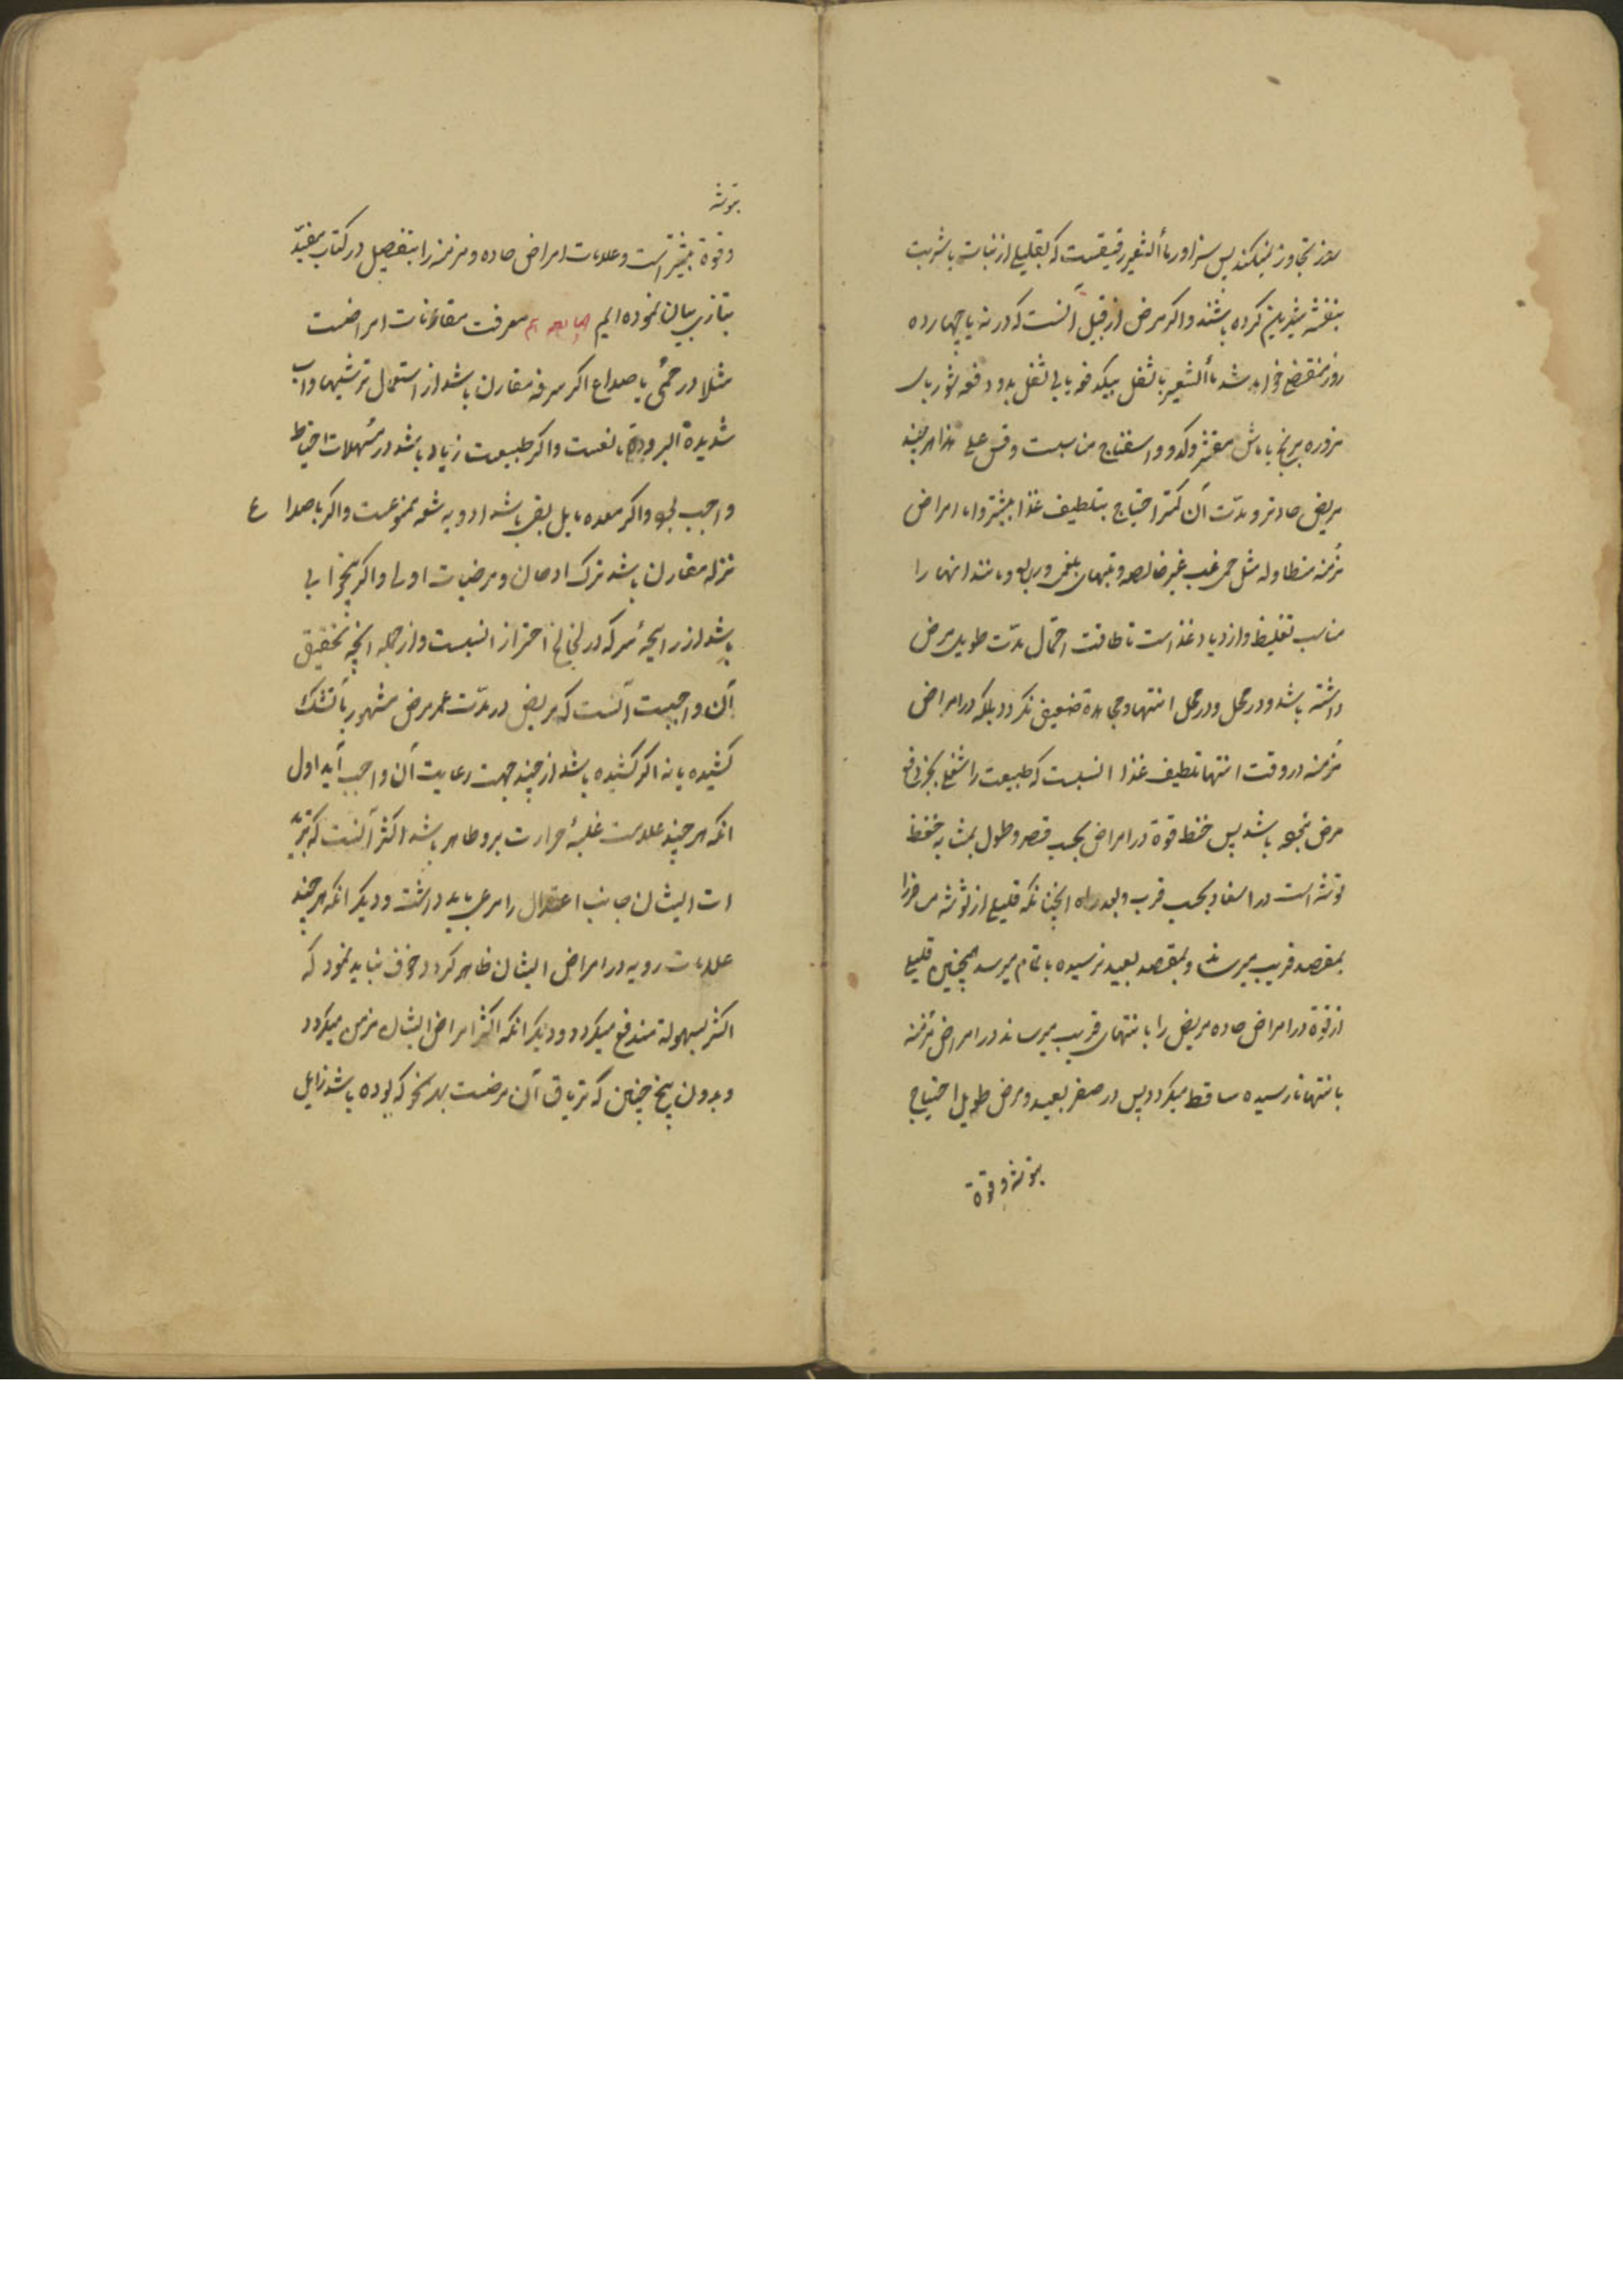 روز تجاوز نمیکند پس سزاوار ماء الشعیر رقیقست که بقلیلی از نبات یا شربت
بنفشه شیرین کرده باشند و اکر مرض از قبیل آنست که در نه یا چهارده
روز منقضی خواهد شد ماء الشعیر با ثفل بیکدفعه یا بی ثفل بدو دفعه شوربای
مزوره برنج با ماش مقشر و کدو و اسفناج مناسبست و قس علی هذا هر چند
مریض حادتر و مدّت آن کمتر احتیاج بتلطیف غذا بیشتر و اما امراض
مُزمنه متطاوله مثل حمی غب غیر خالصه و تبهای بلغمی و ربع و مانند اینها را
مناسب تغلیظ و ازدیاد غذاست تا طاقت احتمال مدّت طویل مرض
داشته باشد و در محل و در محل انتها و مجاهدة ضعیف نکردد بلکه در امراض
مُزمنه در وقت انتها تلطیف غذا انسبست که طبیعت را شغلی بجز دفع
مرض نبوده باشد پس حفظ قوة در امراض بحسب قصر و طول بمثابه حفظ
توشه است در اسفار بحسب قرب و بعد راه همچنانکه قلیلی از توشه مسافر را
بمقصد قریب میرساند و بمقصد بعید نرسیده باتمام میرسد همچنین قلیلی
از قوة در امراض حاده مریض را با نتهای قریب میرساند در امراض مُزمنه
بانتها نارسیده ساقط میکردد پس در سفر بعید و مرض طویل احتیاج
بتوشه و قوة
بتوشه
و قوة بیشتر است و علامات امراض حاده و مزمنه را بتفصیل در کتاب مفیّد
بتازی بیان نموده ایم معرفت مقارنات امراضست
مثلا در حُمّی یا صداع اکر سرفه مقارن باشد از استعمال ترشیها و آب
شدیدة البروده مانعست و اکر طبیعت زیاد باشد در مسهلات احتیاط
واجب بود و اکر معده مایل بقی باشد ادویه شعه ممنوعست و اکر با صداع
نزله مقارن باشد ترک ادهان و مرخیات اولی و اکر بیخوابی
باشد از رایحهٔ سرکه در لخالخ احتراز انسبست و از جمله انچه تحقیق
آن واجبست آنست که مریض در مدّت عمر مرض مشهور بآتشک
کشیده یا نه اکر کشیده باشد از چند جهت رعایت آن واجب آید اول
انکه هر چند علامت غلبهٔ حرارت برو ظاهر باشد اکثر آنست که تبرید
ات ایشان جانب اعتدال را مرعی باید داشت و دیکر انکه هر چند
علامات ردیه در امراض ایشان ظاهر کردد خوف نباید نمود که
اکثر بسهولة مندفع میکردد و دیکر انکه اکثر امراض ایشان مزمن میکردد
و بدون بیخ چینی که تریاق آن مرضست بهر نحو که بوده باشد زایل